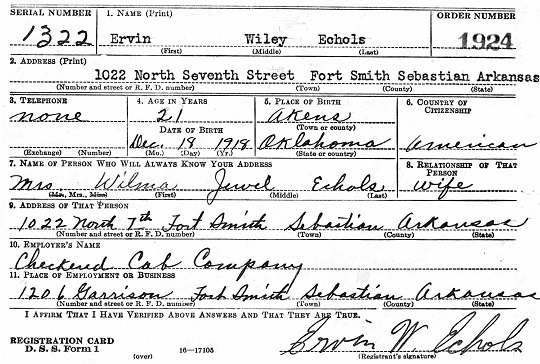 SERIAL NUMBER 1. NAME (Print) ORDER NUMBER
1322 Ervin Wiley Echols 1924
(First) (Middle) (Last)
2. ADDRESS (Print)
1022 North Seventh Street Fort Smith Sebastian Arkansas
(Number and street or R. F. D. number) (Town) (County) (State)
3. TELEPHONE 4. AGE IN YEARS 5. PLACE OF BIRTH 6. COUNTRY OF CITIZENSHIP
none 21 Akens
DATE OF BIRTH (Town or county)
Dec. 18 1918 Oklahoma American
(Exchange) (Number) (Mo.) (Day) (Yr.) (State or country)
7. NAME OF PERSON WHO WILL ALWAYS KNOW YOUR ADDRESS 8. RELATIONSHIP OF THAT PERSON
Mrs. Wilma Jewel Echols wife
(Mr., Mrs., Miss) (First) (Middle) (Last)
9. ADDRESS OF THAT PERSON
1022 North 7th Fort Smith Sebastian Arkansas
(Number and street or R. F. D. number) (Town) (County) (State)
10. EMPLOYER'S NAME
Checkered Cab Company
11. PLACE OF EMPLOYMENT OR BUSINESS
1206 Garrison Fort Smith Sebastian Arkansas
(Number and street or R. F. D. number) (Town) (County) (State)
I AFFIRM THAT I HAVE VERIFIED ABOVE ANSWERS AND THAT THEY ARE TRUE.
REGISTRATION CARD
D. S. S. Form 1 (over) 16—17105 Ervin W. Echols
(Registrant's signature)